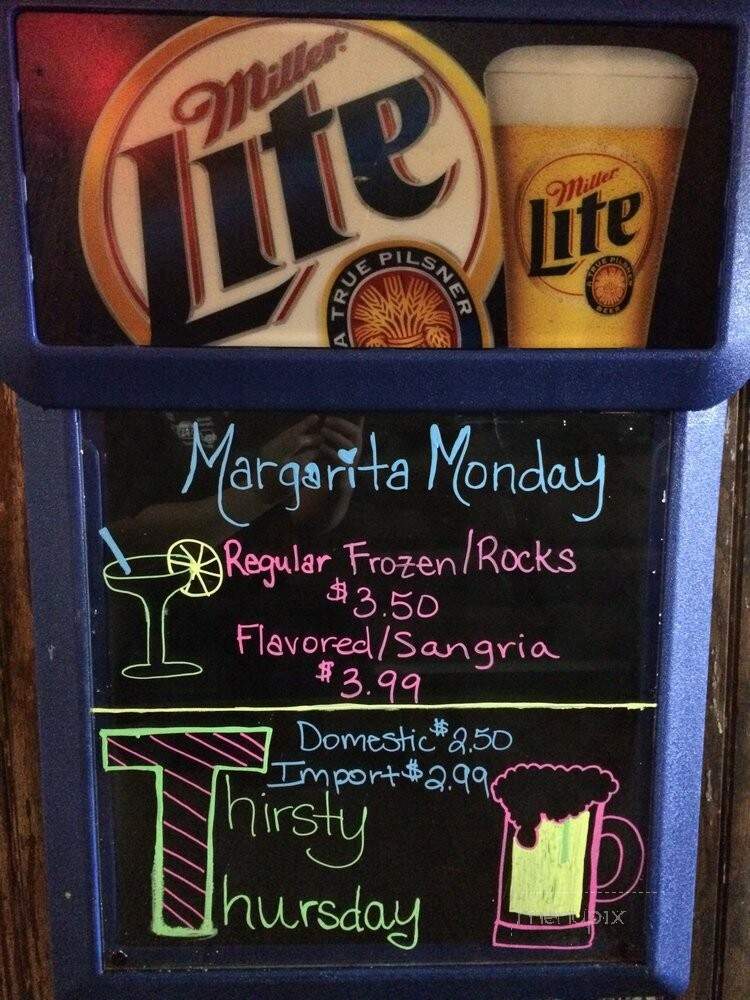 Miller
Lite
A TRUE PILSNER
Miller
Lite
A TRUE PILSNER
BEER
Margarita Monday
Regular Frozen/Rocks
$3.50
Flavored/Sangria
$3.99
Domestic $2.50
Import $2.99
Thirsty
Thursday
menupix